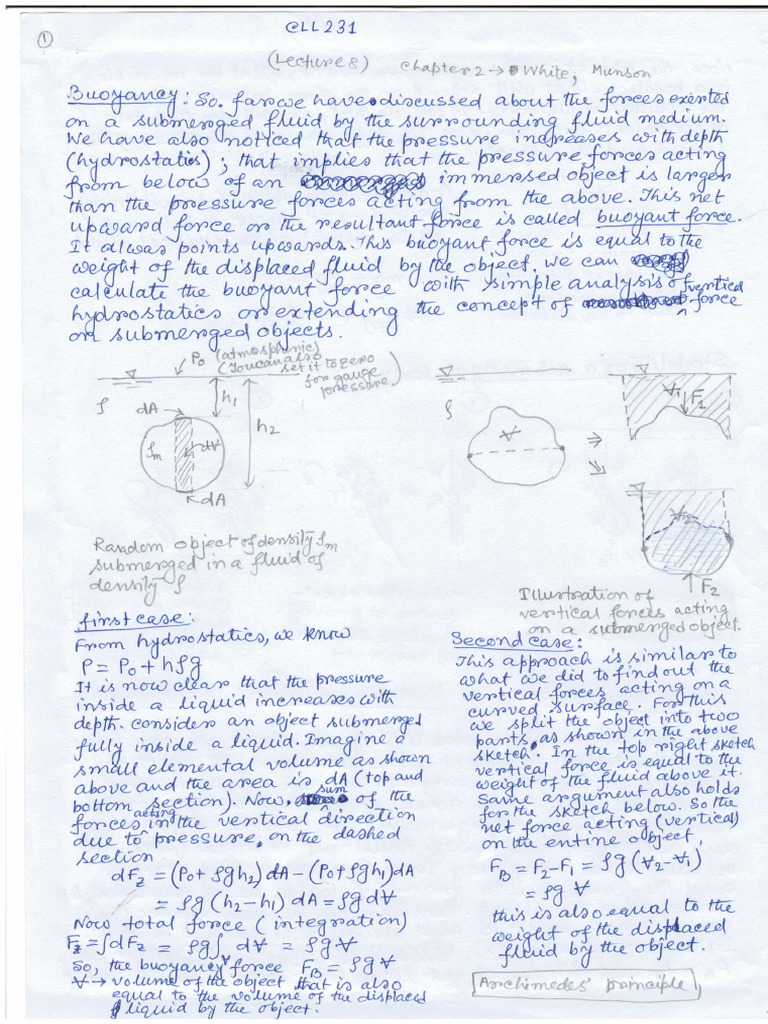 1
CLL231
(Lecture 8) Chapter 2 → White, Munson
Buoyancy: So. far we have discussed about the forces exerted
on a submerged fluid by the surrounding fluid medium.
We have also noticed that the pressure increases with depth
(hydrostatics); that implies that the pressure forces acting
from below of an immersed object is larger
than the pressure forces acting from the above. This net
upward force or the resultant force is called buoyant force.
It always points upwards. This buoyant force is equal to the
weight of the displaced fluid by the object. We can
calculate the buoyant force with simple analysis of
hydrostatics or extending the concept of vertical force
on submerged objects.
P₀ (atmospheric)
(You can also
set it to zero
for gauge
pressure)
ρ
dA
h₁
h₂
ρₘ
dV̶
dA
Random object of density ρₘ
submerged in a fluid of
density ρ
ρ
V̶
⇒
⇘
V̶₁
F₁
V̶₂
F₂
Illustration of
vertical forces acting
on a submerged object.
first case:
From hydrostatics, we know
P = P₀ + hρg
It is now clear that the pressure
inside a liquid increases with
depth. consider an object submerged
fully inside a liquid. Imagine a
small elemental volume as shown
above and the area is dA (top and
bottom section). Now, sum of the
forces acting in the vertical direction
due to pressure, on the dashed
section
dF_z = (P₀ + ρgh₂) dA − (P₀ + ρgh₁) dA
= ρg (h₂ − h₁) dA = ρg dV̶
Now total force (integration)
F_z = ∫dF_z = ρg∫ dV̶ = ρg V̶
So, the buoyancy force F_B = ρg V̶
V̶ → volume of the object that is also
equal to the volume of the displaced
liquid by the object.
Second case:
This approach is similar to
what we did to find out the
vertical forces acting on a
curved surface. For this
we split the object into two
parts, as shown in the above
sketch. In the top right sketch
vertical force is equal to the
weight of the fluid above it.
Same argument also holds
for the sketch below. So the
net force acting (vertical)
on the entire object,
F_B = F₂ − F₁ = ρg (V̶₂ − V̶₁)
= ρg V̶
this is also equal to the
weight of the displaced
fluid by the object.
Archimedes' principle